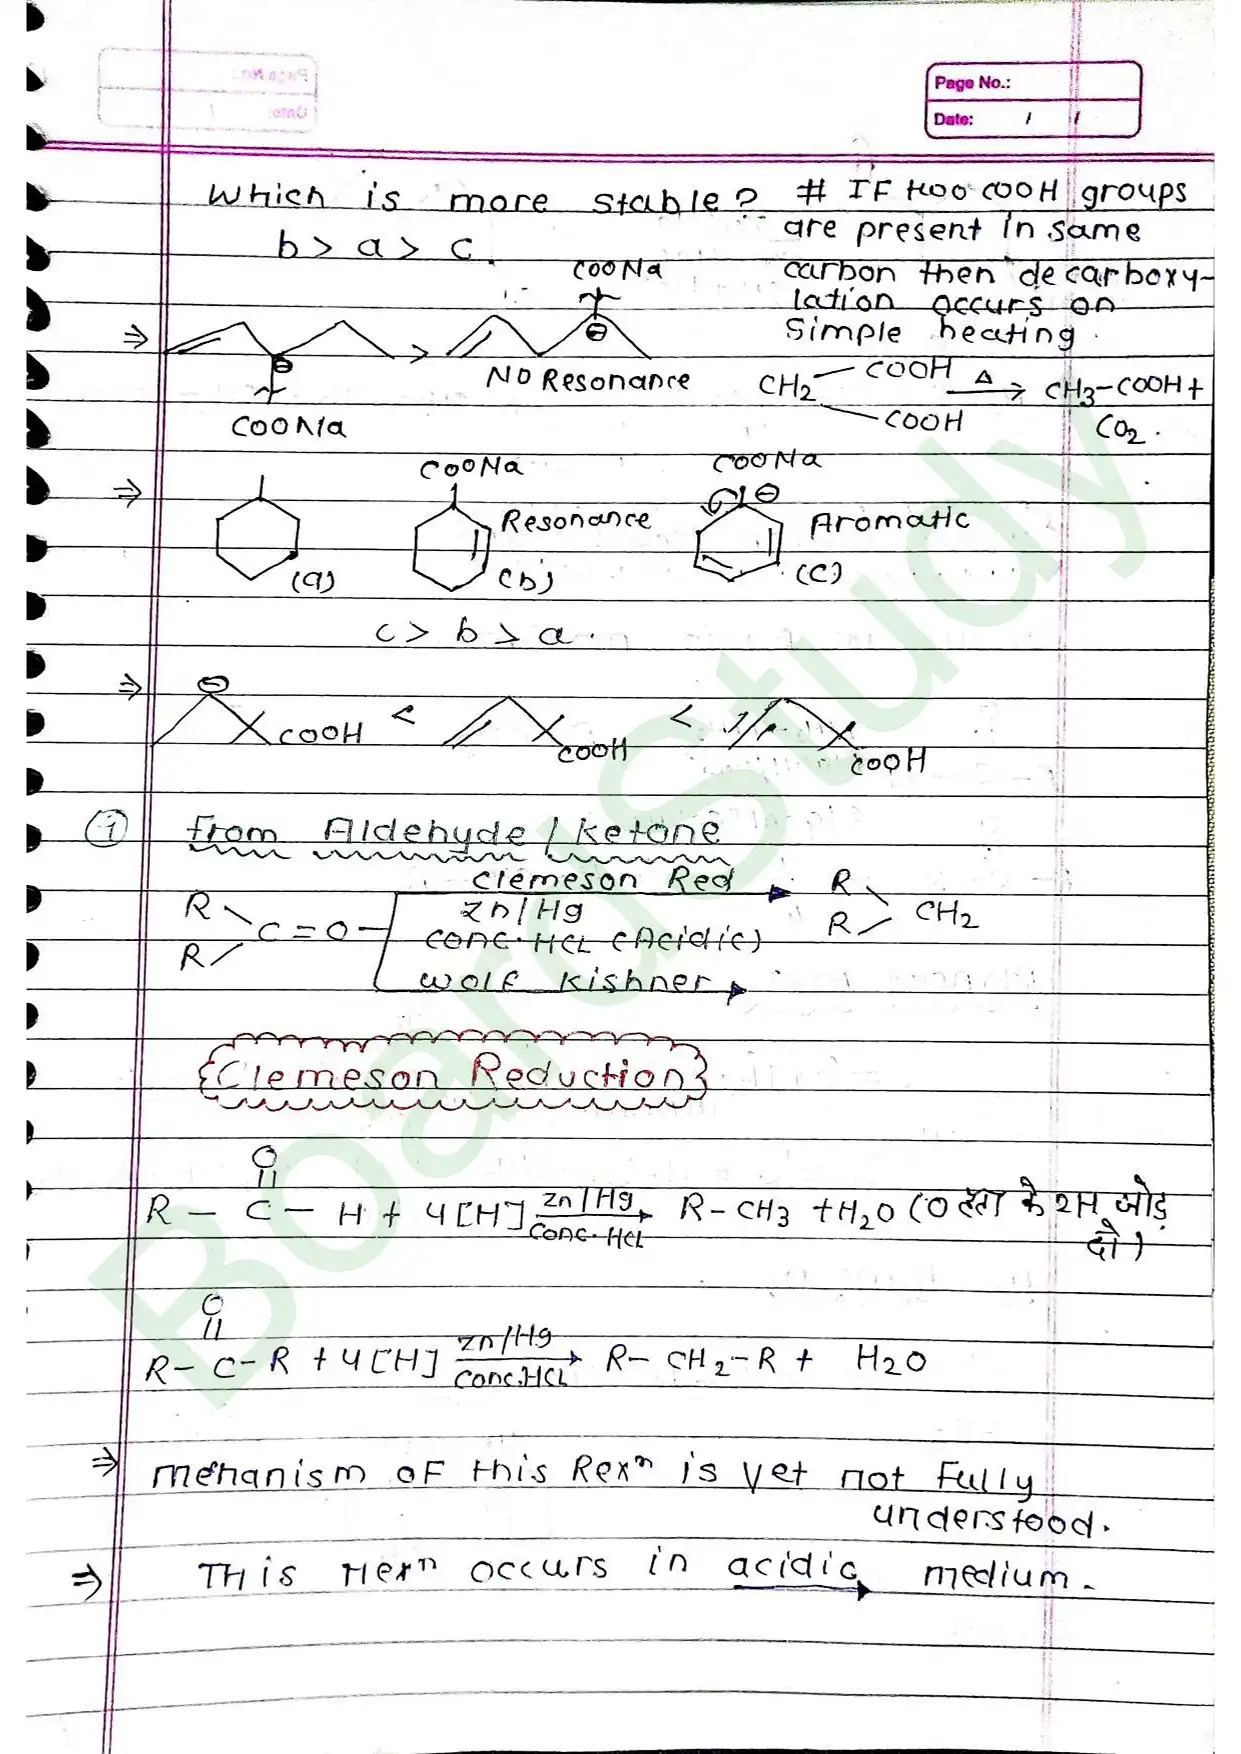 Page No.:
Date: / /
Which is more stable?
b > a > c.
# IF two COOH groups
are present in same
carbon then decarboxy-
lation occurs on
simple heating.
COONa
⇒ ⊖ > ⊖
NO Resonance
COONa
CH2 COOH Δ CH3-COOH +
COOH CO2.
⇒ COONa COONa
⊖
Resonance Aromatic
(a) (b) (c)
c > b > a.
⇒ ⊖
COOH < COOH < COOH
① from Aldehyde / ketone
R R C=O
Clemeson Red
Zn/Hg
conc. HCL (Acidic)
wolf kishner
R R CH2
Clemeson Reduction
O
R - C - H + 4[H] Zn/Hg Conc. HCL R-CH3 + H2O (O हता के 2H जोड़
दो)
O
R- C-R + 4[H] Zn/Hg Conc.HCL R- CH2-R + H2O
⇒ mehanism of this Rexn is yet not Fully
understood.
⇒ THis rexn occurs in acidic medium.
BoardStudy